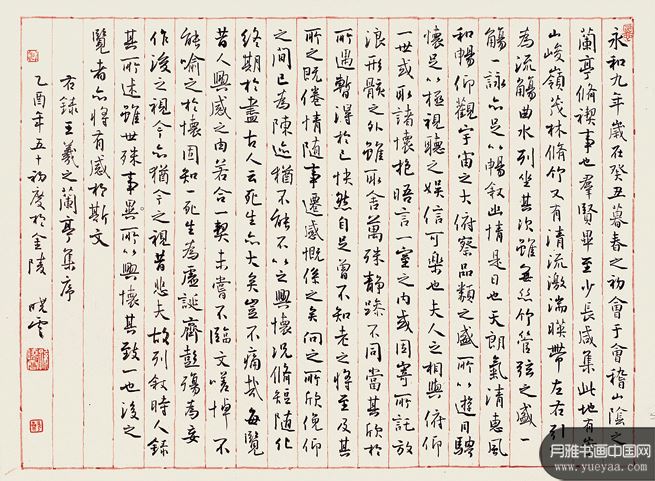 永和九年歲在癸丑暮春之初會于會稽山陰之
蘭亭脩禊事也羣賢畢至少長咸集此地有
山峻嶺茂林脩竹又有清流激湍暎帶左右引
為流觴曲水列坐其次雖無絲竹管弦之盛一
觴一詠亦足以暢敘幽情是日也天朗氣清惠風
和暢仰觀宇宙之大俯察品類之盛所以遊目騁
懷足以極視聽之娛信可樂也夫人之相與俯仰
一世或取諸懷抱晤言一室之內或因寄所託放
浪形骸之外雖取舍萬殊靜躁不同當其欣於
所遇暫得於己快然自足曾不知老之將至及其
所之既倦情隨事遷感慨係之矣向之所欣俛仰
之間已為陳迹猶不能不以之興懷況脩短隨化
終期於盡古人云死生亦大矣豈不痛哉每覽
昔人興感之由若合一契未嘗不臨文嗟悼不
能喻之於懷固知一死生為虛誕齊彭殤為妄
作後之視今亦猶今之視昔悲夫故列敘時人錄
其所述雖世殊事異所以興懷其致一也後之
覽者亦將有感於斯文
右錄王羲之蘭亭集序
乙酉年五十初度於金陵 曉雲
月雅书画中国网
www.yueyaa.com